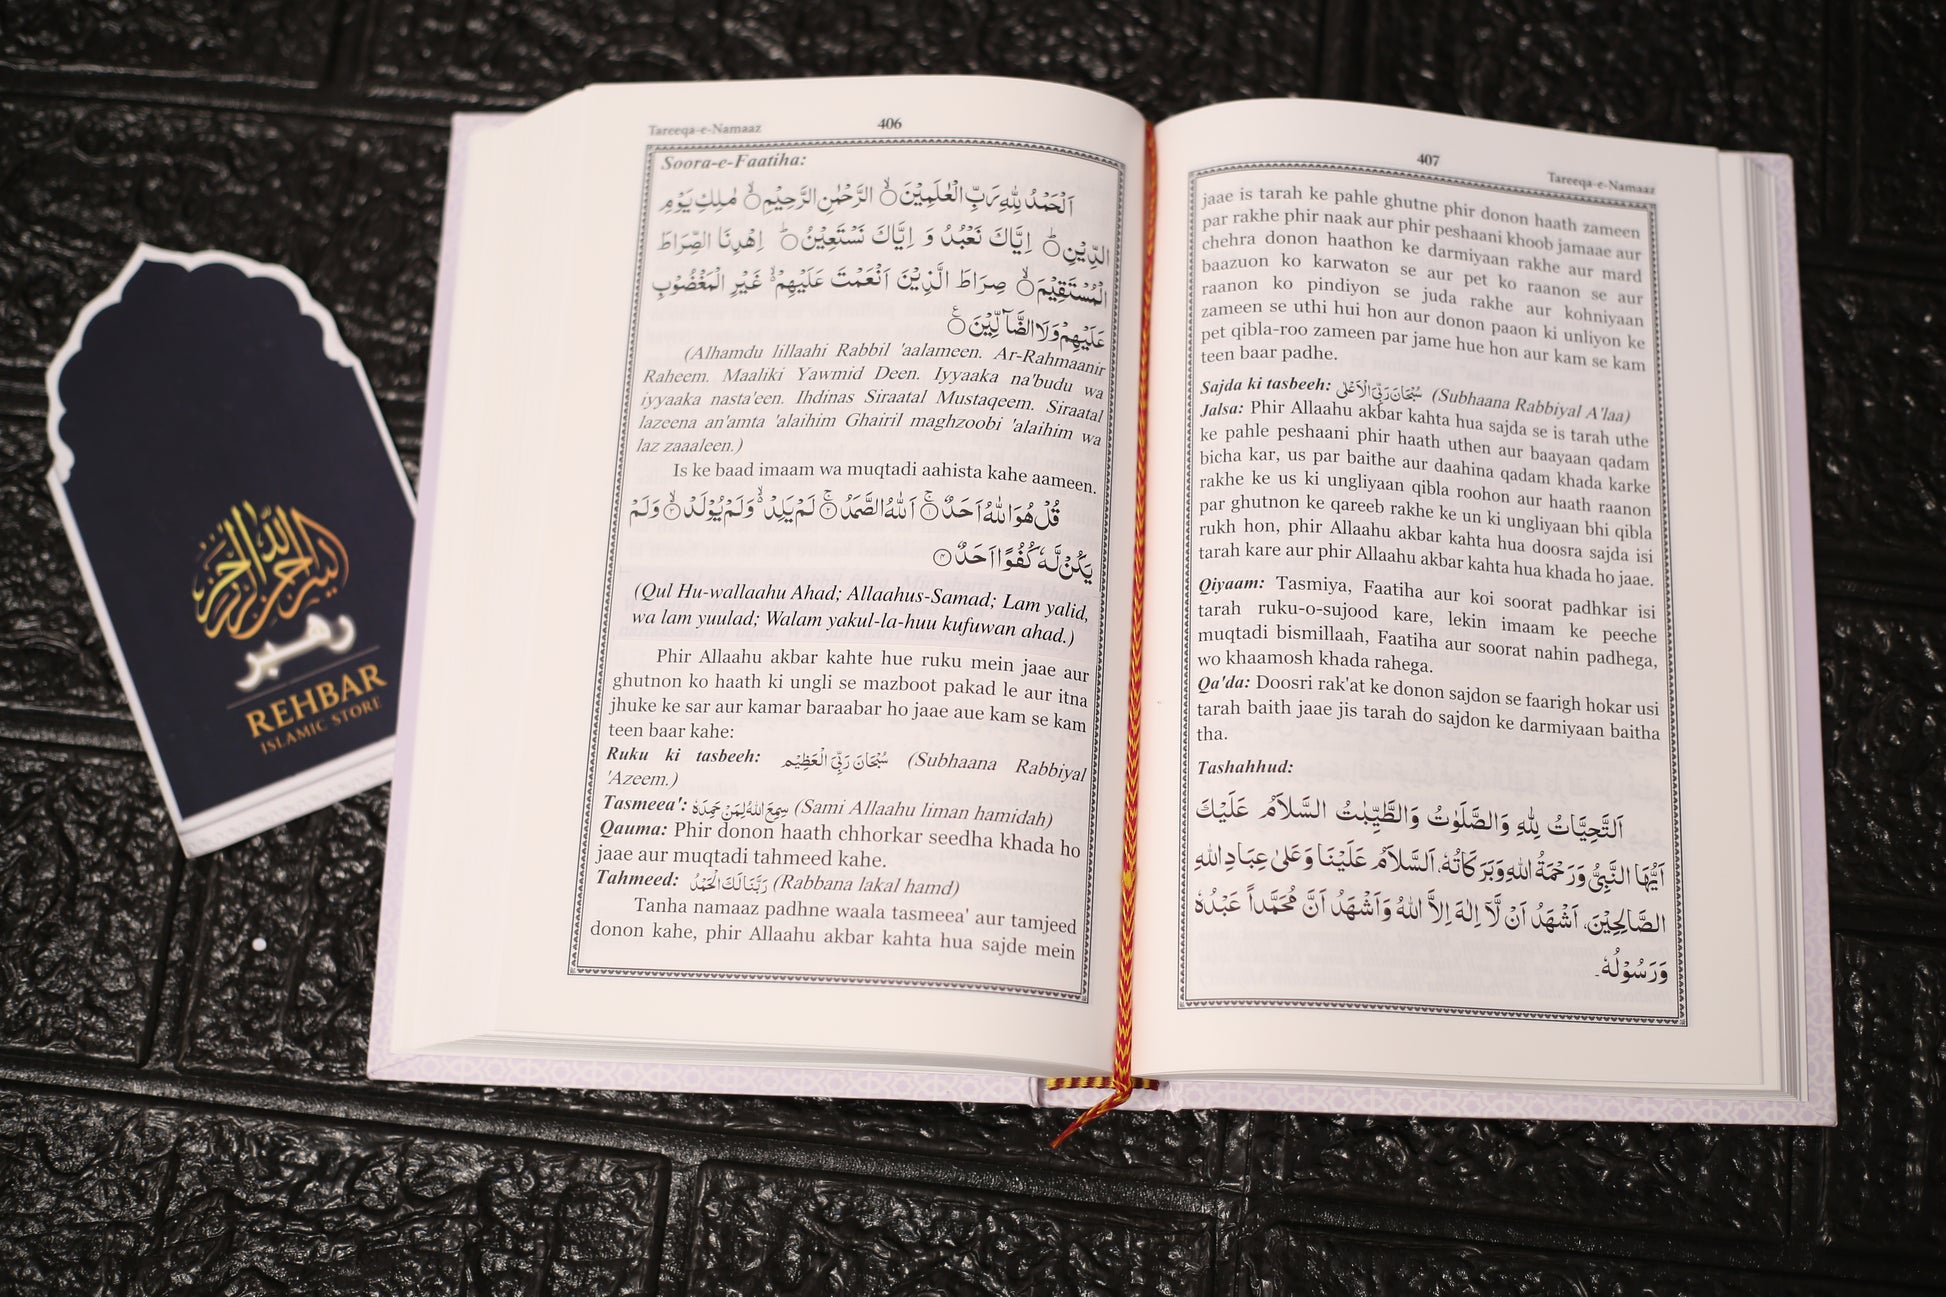 بسم الله الرحمن الرحيم
رهبر
REHBAR
ISLAMIC STORE
Tareeqa-e-Namaaz
406
Soora-e-Faatiha:
اَلْحَمْدُ لِلّٰهِ رَبِّ الْعٰلَمِيْنَ ۙ الرَّحْمٰنِ الرَّحِيْمِ ۙ مٰلِكِ يَوْمِ
الدِّيْنِ ؕ اِيَّاكَ نَعْبُدُ وَ اِيَّاكَ نَسْتَعِيْنُ ؕ اِهْدِنَا الصِّرَاطَ
الْمُسْتَقِيْمَ ۙ صِرَاطَ الَّذِيْنَ اَنْعَمْتَ عَلَيْهِمْ ۙ غَيْرِ الْمَغْضُوْبِ
عَلَيْهِمْ وَلَا الضَّآلِّيْنَ
(Alhamdu lillaahi Rabbil 'aalameen. Ar-Rahmaanir
Raheem. Maaliki Yawmid Deen. Iyyaaka na'budu wa
iyyaaka nasta'een. Ihdinas Siraatal Mustaqeem. Siraatal
lazeena an'amta 'alaihim Ghairil maghzoobi 'alaihim wa
laz zaaaleen.)
Is ke baad imaam wa muqtadi aahista kahe aameen.
قُلْ هُوَ اللّٰهُ اَحَدٌ ۚ اَللّٰهُ الصَّمَدُ ۚ لَمْ يَلِدْ ۙ وَلَمْ يُوْلَدْ ۙ وَلَمْ
يَكُنْ لَّهٗ كُفُوًا اَحَدٌ
(Qul Hu-wallaahu Ahad; Allaahus-Samad; Lam yalid,
wa lam yuulad; Walam yakul-la-huu kufuwan ahad.)
Phir Allaahu akbar kahte hue ruku mein jaae aur
ghutnon ko haath ki ungli se mazboot pakad le aur itna
jhuke ke sar aur kamar baraabar ho jaae aue kam se kam
teen baar kahe:
Ruku ki tasbeeh: سُبْحَانَ رَبِّيَ الْعَظِيْمِ (Subhaana Rabbiyal
'Azeem.)
Tasmeea': سَمِعَ اللّٰهُ لِمَنْ حَمِدَهٗ (Sami Allaahu liman hamidah)
Qauma: Phir donon haath chhorkar seedha khada ho
jaae aur muqtadi tahmeed kahe.
Tahmeed: رَبَّنَا لَكَ الْحَمْدُ (Rabbana lakal hamd)
Tanha namaaz padhne waala tasmeea' aur tamjeed
donon kahe, phir Allaahu akbar kahta hua sajde mein
407
Tareeqa-e-Namaaz
jaae is tarah ke pahle ghutne phir donon haath zameen
par rakhe phir naak aur phir peshaani khoob jamaae aur
chehra donon haathon ke darmiyaan rakhe aur mard
baazuon ko karwaton se aur pet ko raanon se aur
raanon ko pindiyon se juda rakhe aur kohniyaan
zameen se uthi hui hon aur donon paaon ki unliyon ke
pet qibla-roo zameen par jame hue hon aur kam se kam
teen baar padhe.
Sajda ki tasbeeh: سُبْحَانَ رَبِّيَ الْاَعْلٰى (Subhaana Rabbiyal A'laa)
Jalsa: Phir Allaahu akbar kahta hua sajda se is tarah uthe
ke pahle peshaani phir haath uthen aur baayaan qadam
bicha kar, us par baithe aur daahina qadam khada karke
rakhe ke us ki ungliyaan qibla roohon aur haath raanon
par ghutnon ke qareeb rakhe ke un ki ungliyaan bhi qibla
rukh hon, phir Allaahu akbar kahta hua doosra sajda isi
tarah kare aur phir Allaahu akbar kahta hua khada ho jaae.
Qiyaam: Tasmiya, Faatiha aur koi soorat padhkar isi
tarah ruku-o-sujood kare, lekin imaam ke peeche
muqtadi bismillaah, Faatiha aur soorat nahin padhega,
wo khaamosh khada rahega.
Qa'da: Doosri rak'at ke donon sajdon se faarigh hokar usi
tarah baith jaae jis tarah do sajdon ke darmiyaan baitha
tha.
Tashahhud:
اَلتَّحِيَّاتُ لِلّٰهِ وَالصَّلَوٰتُ وَالطَّيِّبٰتُ السَّلَامُ عَلَيْكَ
اَيُّهَا النَّبِيُّ وَرَحْمَةُ اللّٰهِ وَبَرَكَاتُهٗ، اَلسَّلَامُ عَلَيْنَا وَعَلٰى عِبَادِ اللّٰهِ
الصَّالِحِيْنَ، اَشْهَدُ اَنْ لَّآ اِلٰهَ اِلَّا اللّٰهُ وَاَشْهَدُ اَنَّ مُحَمَّدًا عَبْدُهٗ
وَرَسُوْلُهٗ۔